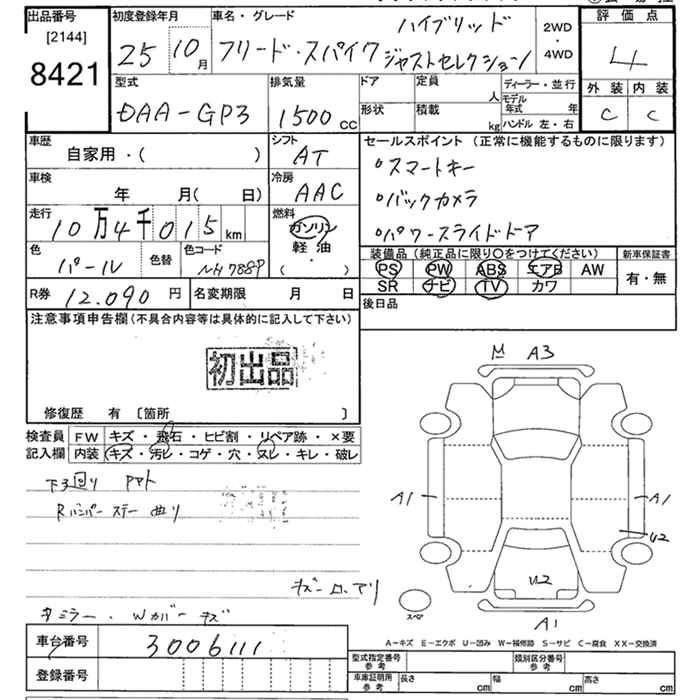 出品番号
[2144]
8421
初度登録年月
25 10月
車名・グレード
ハイブリッド
フリード・スパイク ジャストセレクション
2WD
・
4WD
評価点
4
外装 内装
C C
型式
DAA-GP3
排気量
1500 CC
ドア
定員
人
形状
積載
kg
ディーラー・並行
モデル年式 年
ハンドル 左・右
車歴
自家用・( )
シフト
AT
車検
年 月(日)
冷房
AAC
走行
10万4千015km
燃料
ガソリン
軽油
( ・ )
色
パール
色替
色コード
NH788P
R券 12.090 円
名変期限 月 日
セールスポイント (正常に機能するものに限ります)
°スマートキー
°バックカメラ
°パワースライドドア
装備品(純正品に限り○をつけてください)
PS PW ABS エアB AW
SR ナビ TV カワ
新車保証書
有・無
後日品
注意事項申告欄(不具合内容等は具体的に記入して下さい)
初出品
修復歴 有 〔箇所 〕
検査員
記入欄
FW キズ・飛石・ヒビ割・リペア跡・×要
内装 キズ・汚レ・コゲ・穴・スレ・キレ・破レ
下マ回り
Rバンパー ステー 曲り
キズ
M A3
A1
A1
U2
U2
スペア
A1
A-キズ E-エクボ U-凹み W-補修跡 S-サビ C-腐食 XX-交換済
車台番号
3006111
登録番号
型式指定番号
参考
類別区分番号
参考
車庫証明用
参考
長さ cm
幅 cm
高さ cm